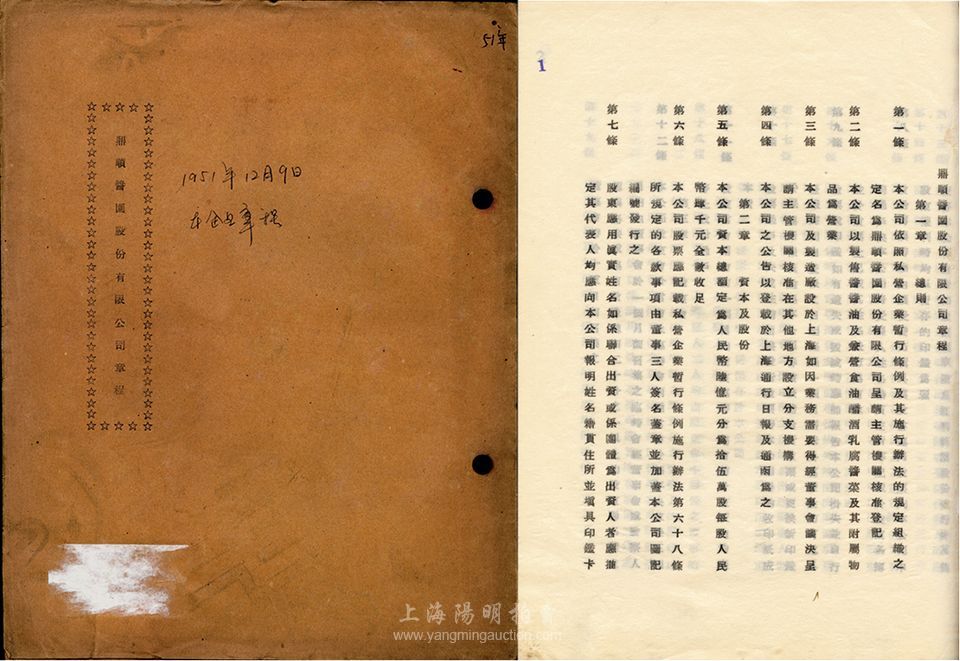 51年
鼎頤醬園股份有限公司章程
1951年12月9日
章程
1
鼎頤醬園股份有限公司章程
第一章 總則
第一條 本公司依照私營企業暫行條例及其施行辦法的規定組織之
定名爲鼎頤醬園股份有限公司呈請主管機關核准登記
第二條 本公司以製售醬醬油及兼營食油醋酒乳腐醬菜及其附屬物
品爲營業
第三條 本公司及製造廠設於上海如因業務需要得經董事會議決呈
請主管機關核准在其他地方設立分支機構
第四條 本公司之公告以登載於上海通行日報及通函爲之
第二章 資本及股份
第五條 本公司資本總額定爲人民幣陸億元分爲拾伍萬股每股人民
幣肆千元全數收足
第六條 本公司股票應記載私營企業暫行條例施行辦法第六十八條
所規定的各款事項由董事三人簽名蓋章並加蓋本公司圖記
編號發行之
第七條 股東應用眞實姓名如係聯合出資或係團體爲出資人者應推
定其代表人均應向本公司報明姓名籍貫住所並塡具印鑑卡
上海陽明拍賣
www.yangmingauction.com